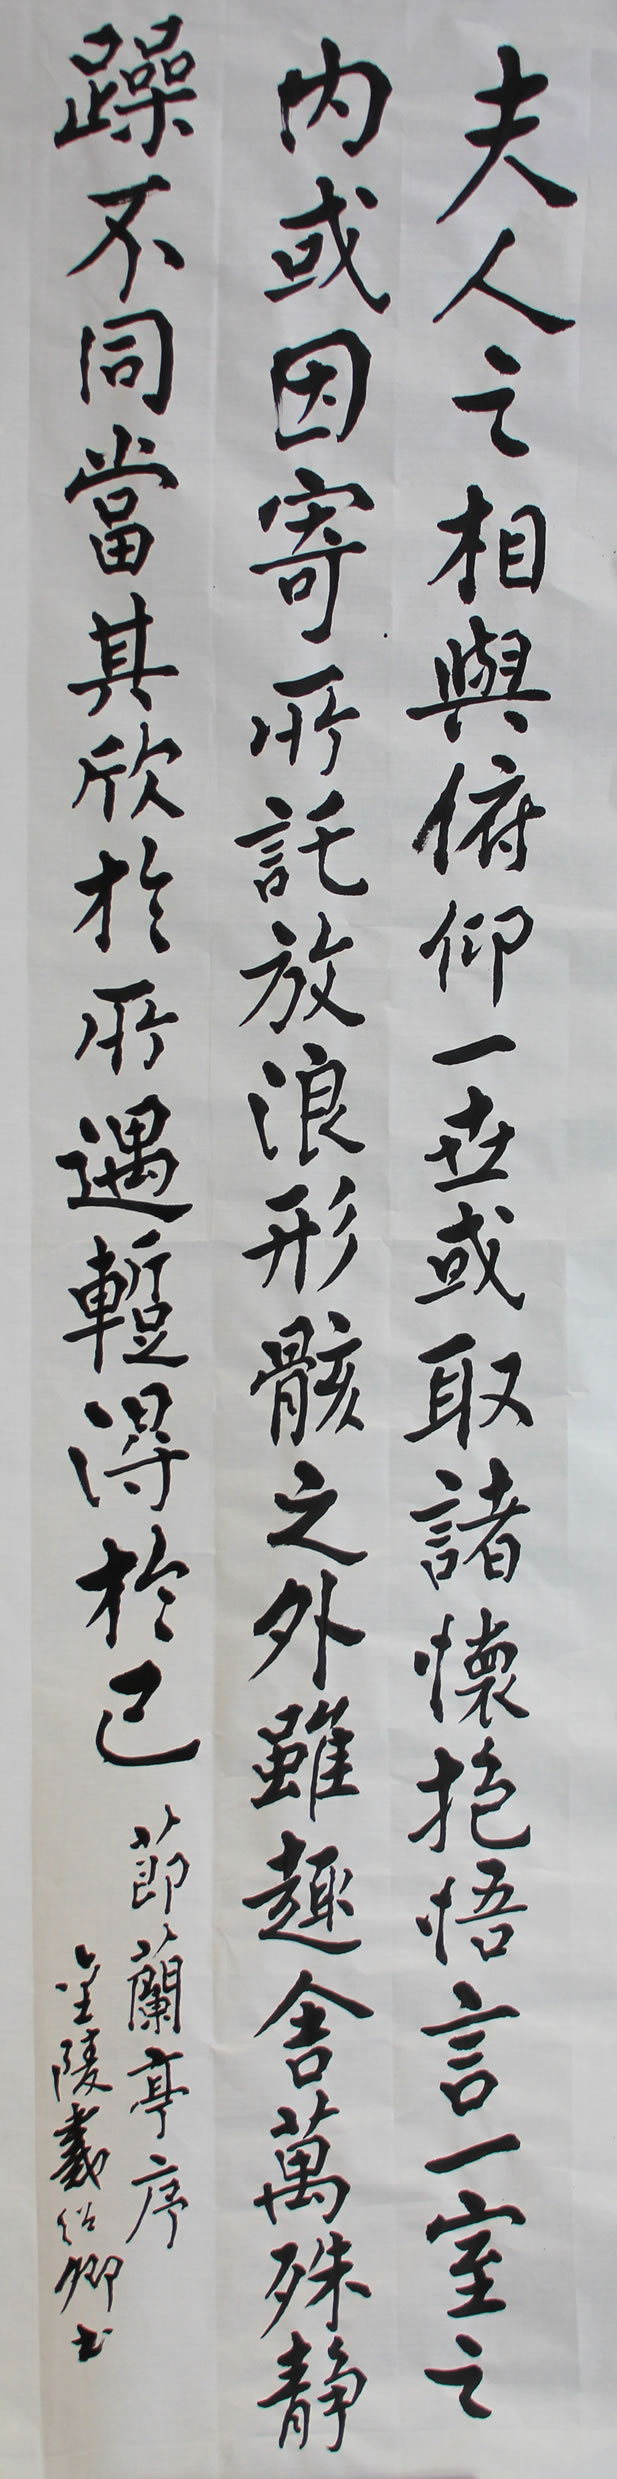 夫人之相與俯仰一世或取諸懷抱悟言一室之
内或因寄所託放浪形骸之外雖趣舍萬殊静
躁不同當其欣於所遇蹔得於己
節蘭亭序
金陵戴紹卿书